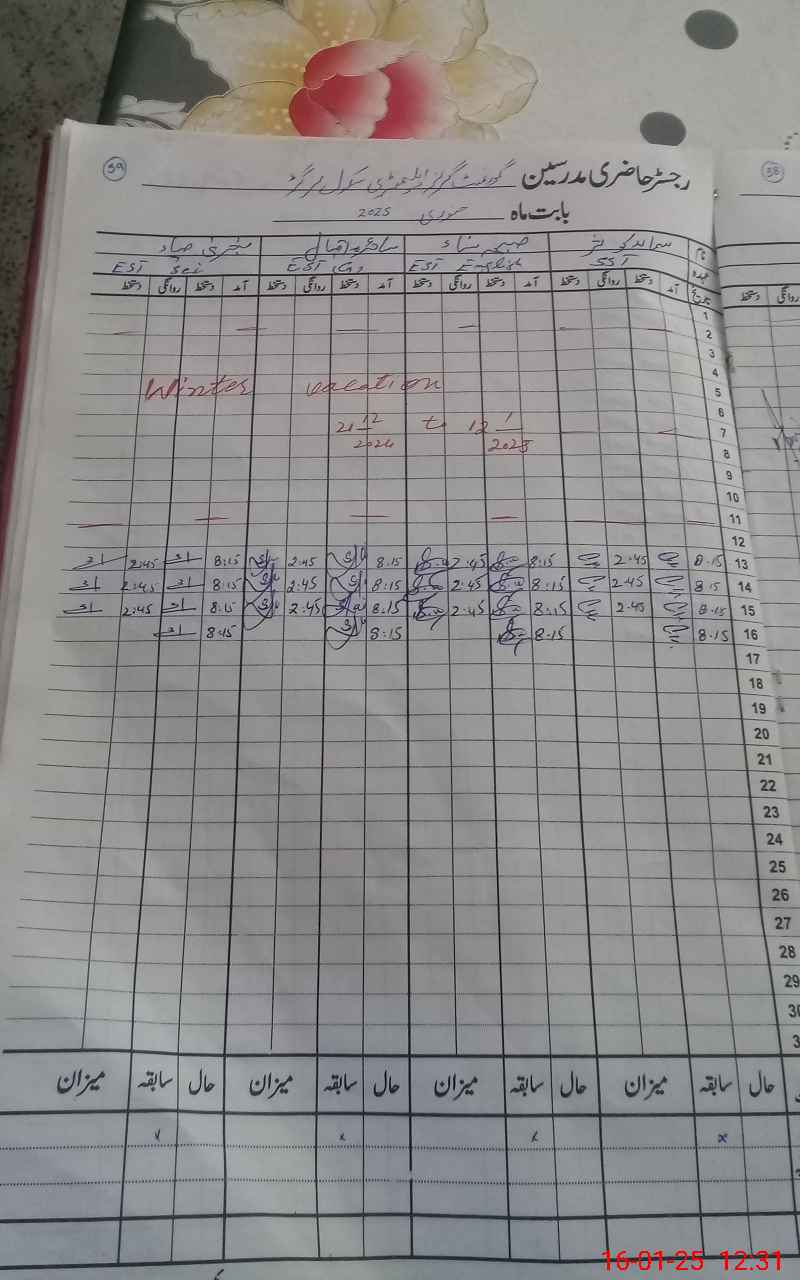 59
58
رجسٹر حاضری مدرسین گورنمنٹ گرلز ایلیمنٹری سکول
بابت ماہ جنوری 2025
نام
عہدہ SST EST English EST EST Sci
تاریخ آمد دستخط روانگی دستخط آمد دستخط روانگی دستخط آمد دستخط روانگی دستخط آمد دستخط روانگی دستخط
روانگی دستخط
1
2
3
4
Winter vacation
5
6
21 12 2024 to 12 1 2025
7
8
9
10
11
12
13 8.15 2.45 8.15 2.45 8.15 2.45 8.15 2.45
14 8.15 2.45 8.15 2.45 8.15 2.45 8.15 2.45
15 8.15 2.45 8.15 2.45 8.15 2.45 8.15 2.45
16 8.15 8.15 8.15 8.45
17
18
19
20
21
22
23
24
25
26
27
28
29
30
حال سابقہ میزان حال سابقہ میزان حال سابقہ میزان حال سابقہ میزان
x x x x
16-01-25 12:31